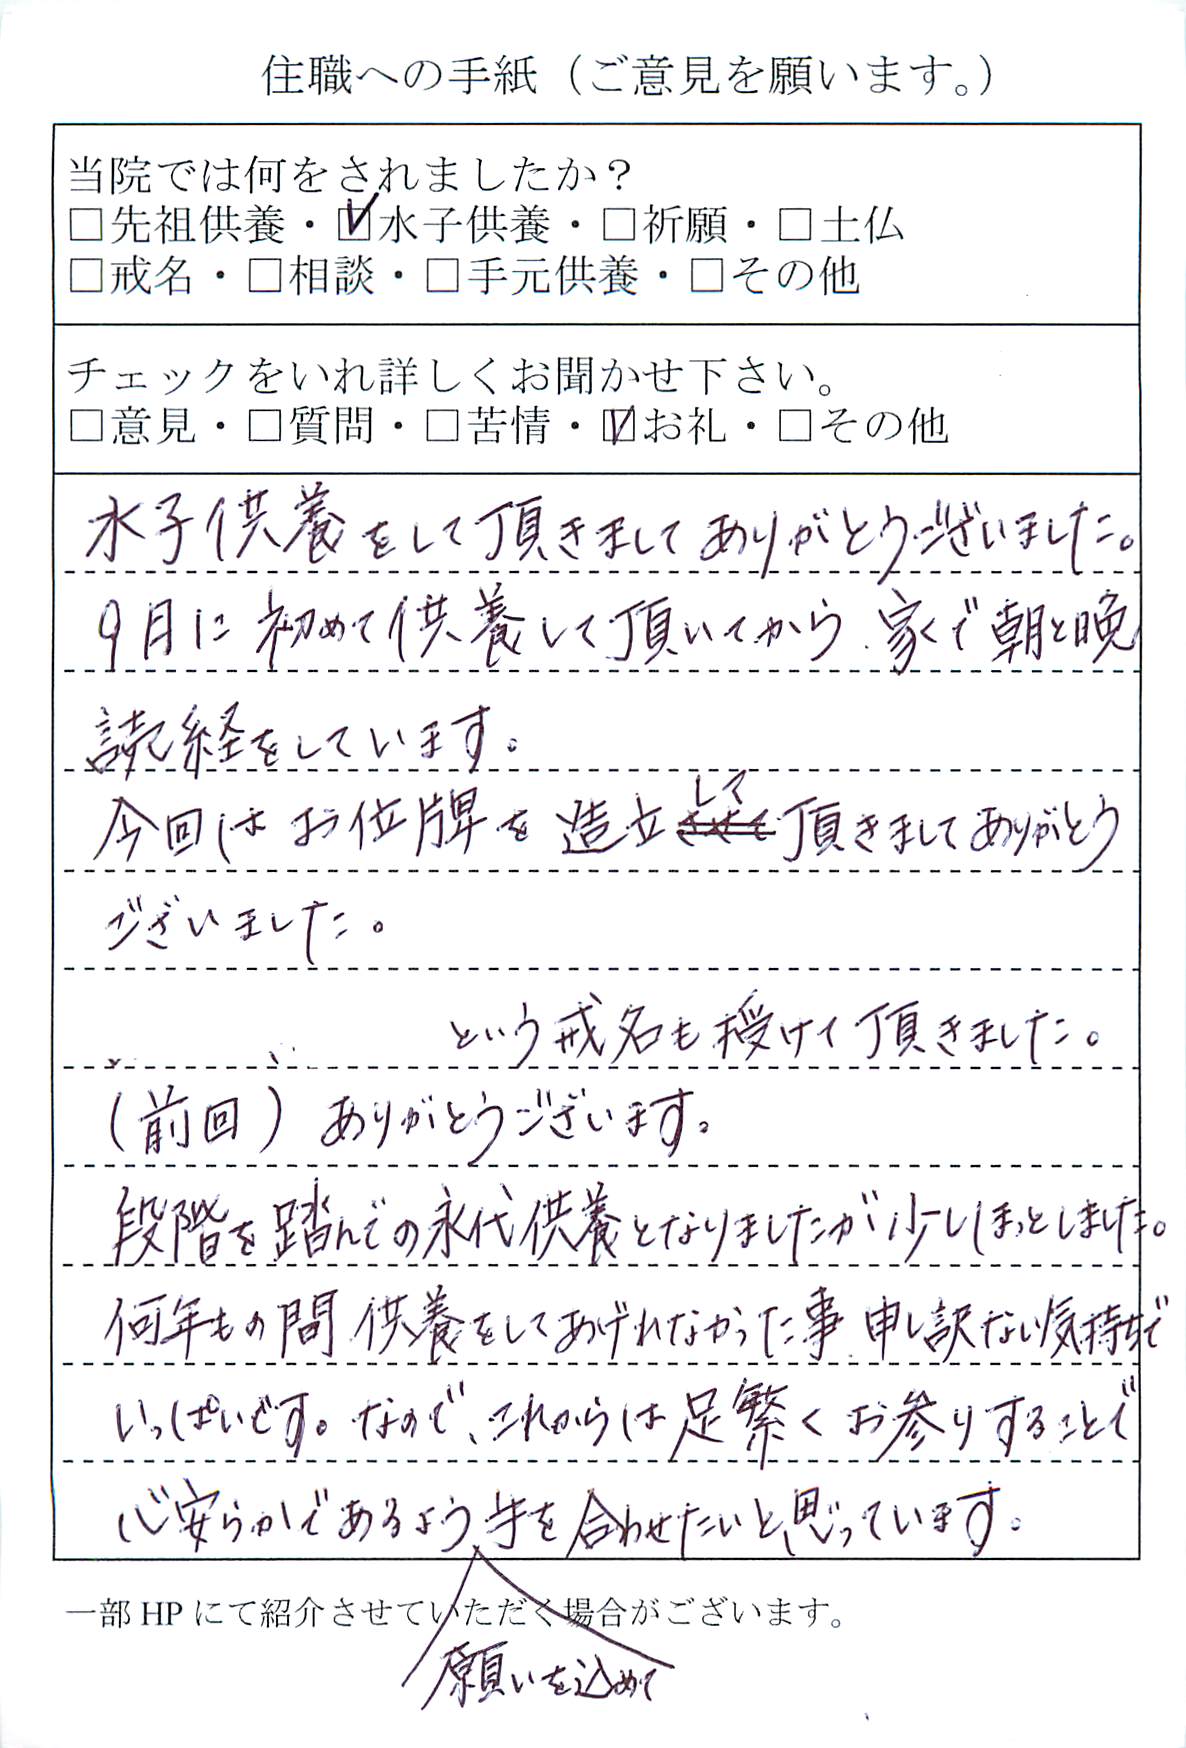 住職への手紙（ご意見を願います。）
当院では何をされましたか？
□先祖供養・☑水子供養・□祈願・□土仏
□戒名・□相談・□手元供養・□その他
チェックをいれ詳しくお聞かせ下さい。
□意見・□質問・□苦情・☑お礼・□その他
水子供養をして頂きましてありがとうございました。
9月に初めて供養して頂いてから、家で朝と晩
読経をしています。
今回はお位牌を造立して頂きましてありがとう
ございました。
という戒名も授けて頂きました。
（前回）ありがとうございます。
段階を踏んでの永代供養となりましたが少しほっとしました。
何年もの間供養をしてあげれなかった事、申し訳ない気持ちで
いっぱいです。なので、これからは足繁くお参りすることで
心安らかであるよう手を合わせたいと思っています。
一部HPにて紹介させていただく場合がございます。
願いを込めて